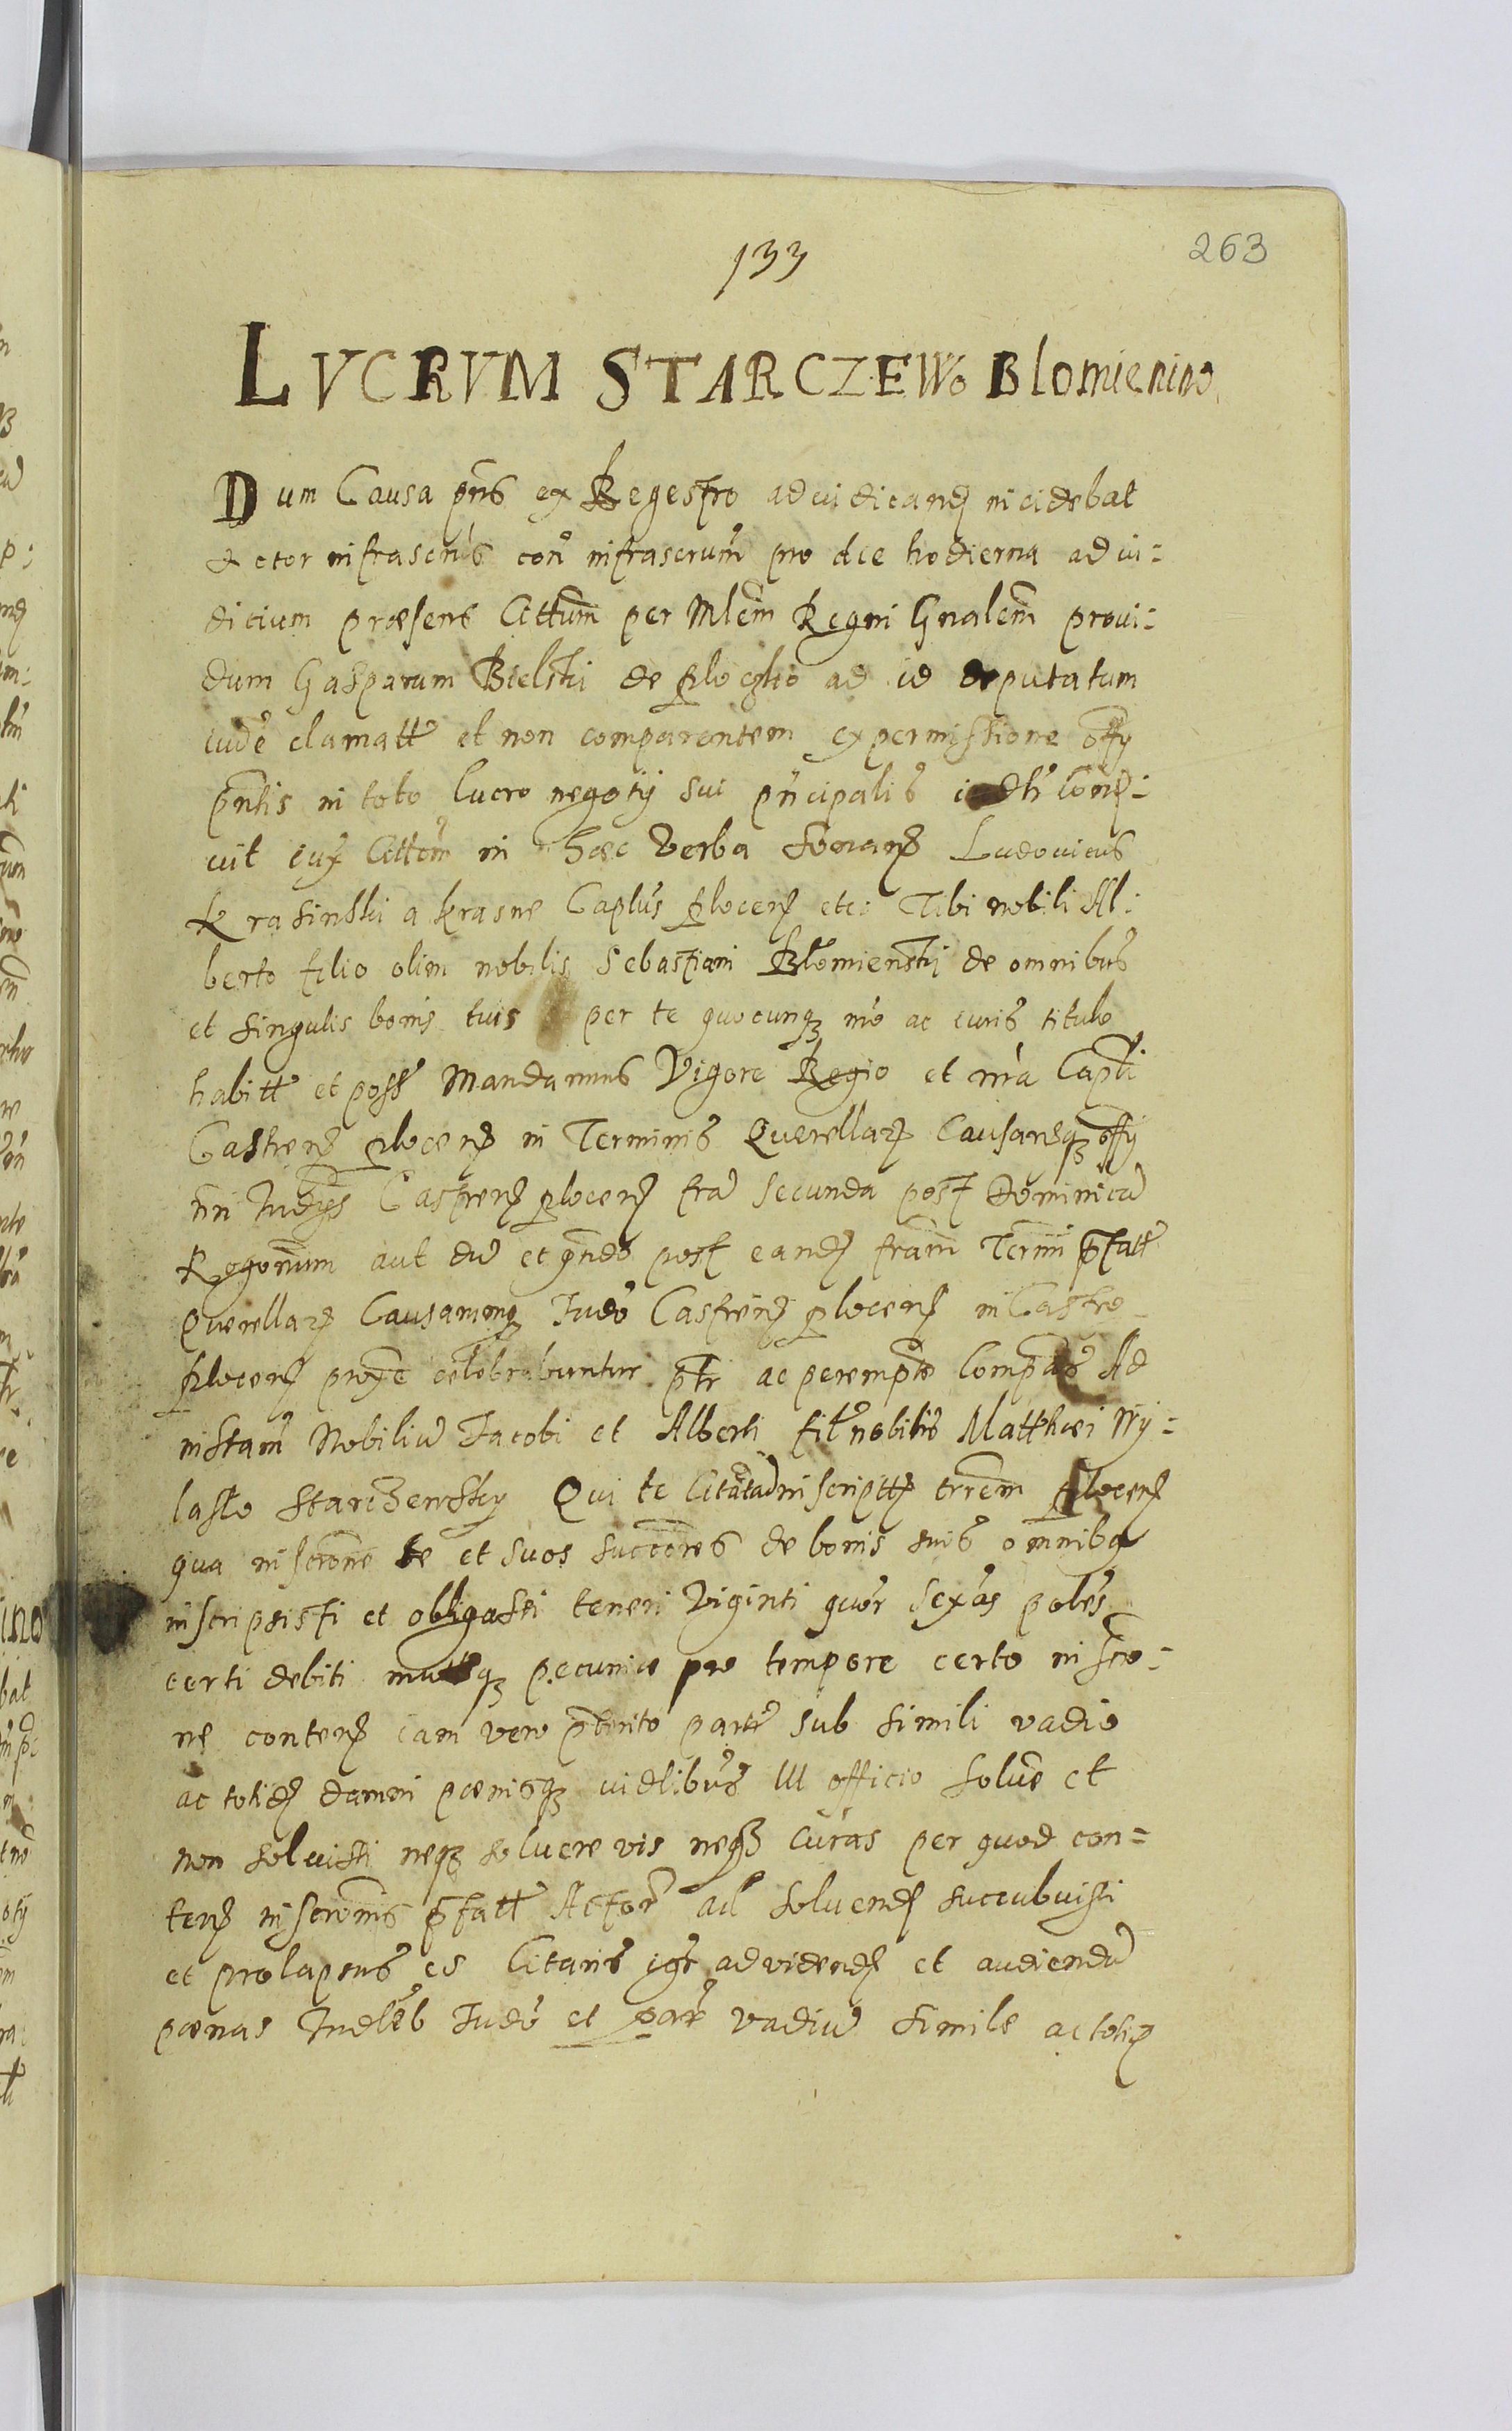 133
263
LVCRVM STARCZEWo Blomienino
Dum Causa pñs ex Regestro adiudicand incidebat
Actor infrascrús con infrascrum̃ pro die hodierna ad iu:
dicium præsens Cittum̃ per Mlem̃ Regni Gnalem̃ provi:
dum Gasparum Bielski de Ploczko ad id deputatum
iude clamatt et non comparentem ex permissione offy
pñtis in toto lucro negotij sui pñcipalis
cuit cuy Cittõm in hæc Verba Sonans Ludovicus
Krasinski a krasne Caplús Plocens etc: Tibi nobili Al:
berto filio olim nobilis Sebastiani Blomienskij de omnibus
et singulis bonis tuis per te quocunqz mõ ac iuris titulo
habitt et poss Mandamus Vigore Regio et mrã Capti
Castrens Plocens in Terminis Querellarz Causarqz offy
Castrens plocens fra secunda post Dominica
Regonum aut dũ et qñdõ post eand fram̃ Termi pfatt
Querellarz Causarumqz Judõ Castrens plocens in Castro
Plocens proxe celebrabuntur ptr ac perempte Comp Ad
instam̃ Nobiliũ Jacobi et Alberti fil nobilis Matthæi Wy:
lasło Starczewsky Qui te Citat ad inscriptt trrem̃ Plocens
qua inscrõne te et suos succores de bonis suis omnibq
inscripsisti et obligasti teneri Viginti quõr sexas poles
certi debiti pecuniæ pro tempore certo inscro:
ne contens iam vero pterito partr sub simili vadio
ac totid damni pœnisqz iudlibus officio solue et
non soluisti neqz soluere vis neqz curas per quod con=
tens inscronis pfatt Actor ad soluend succubuisti
et prolapsus es Citaris igr ad vidend et audiendũ
pœnas Judlẽb Judõ et par vadiũ simile ac totid